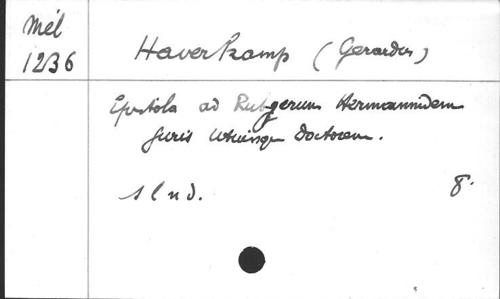 Mél
1236
Haverkamp (Gerardus)
Epistola ad Rutgerum Hermannidem
Juris Utriusque Doctorem.
s l n d. 8.